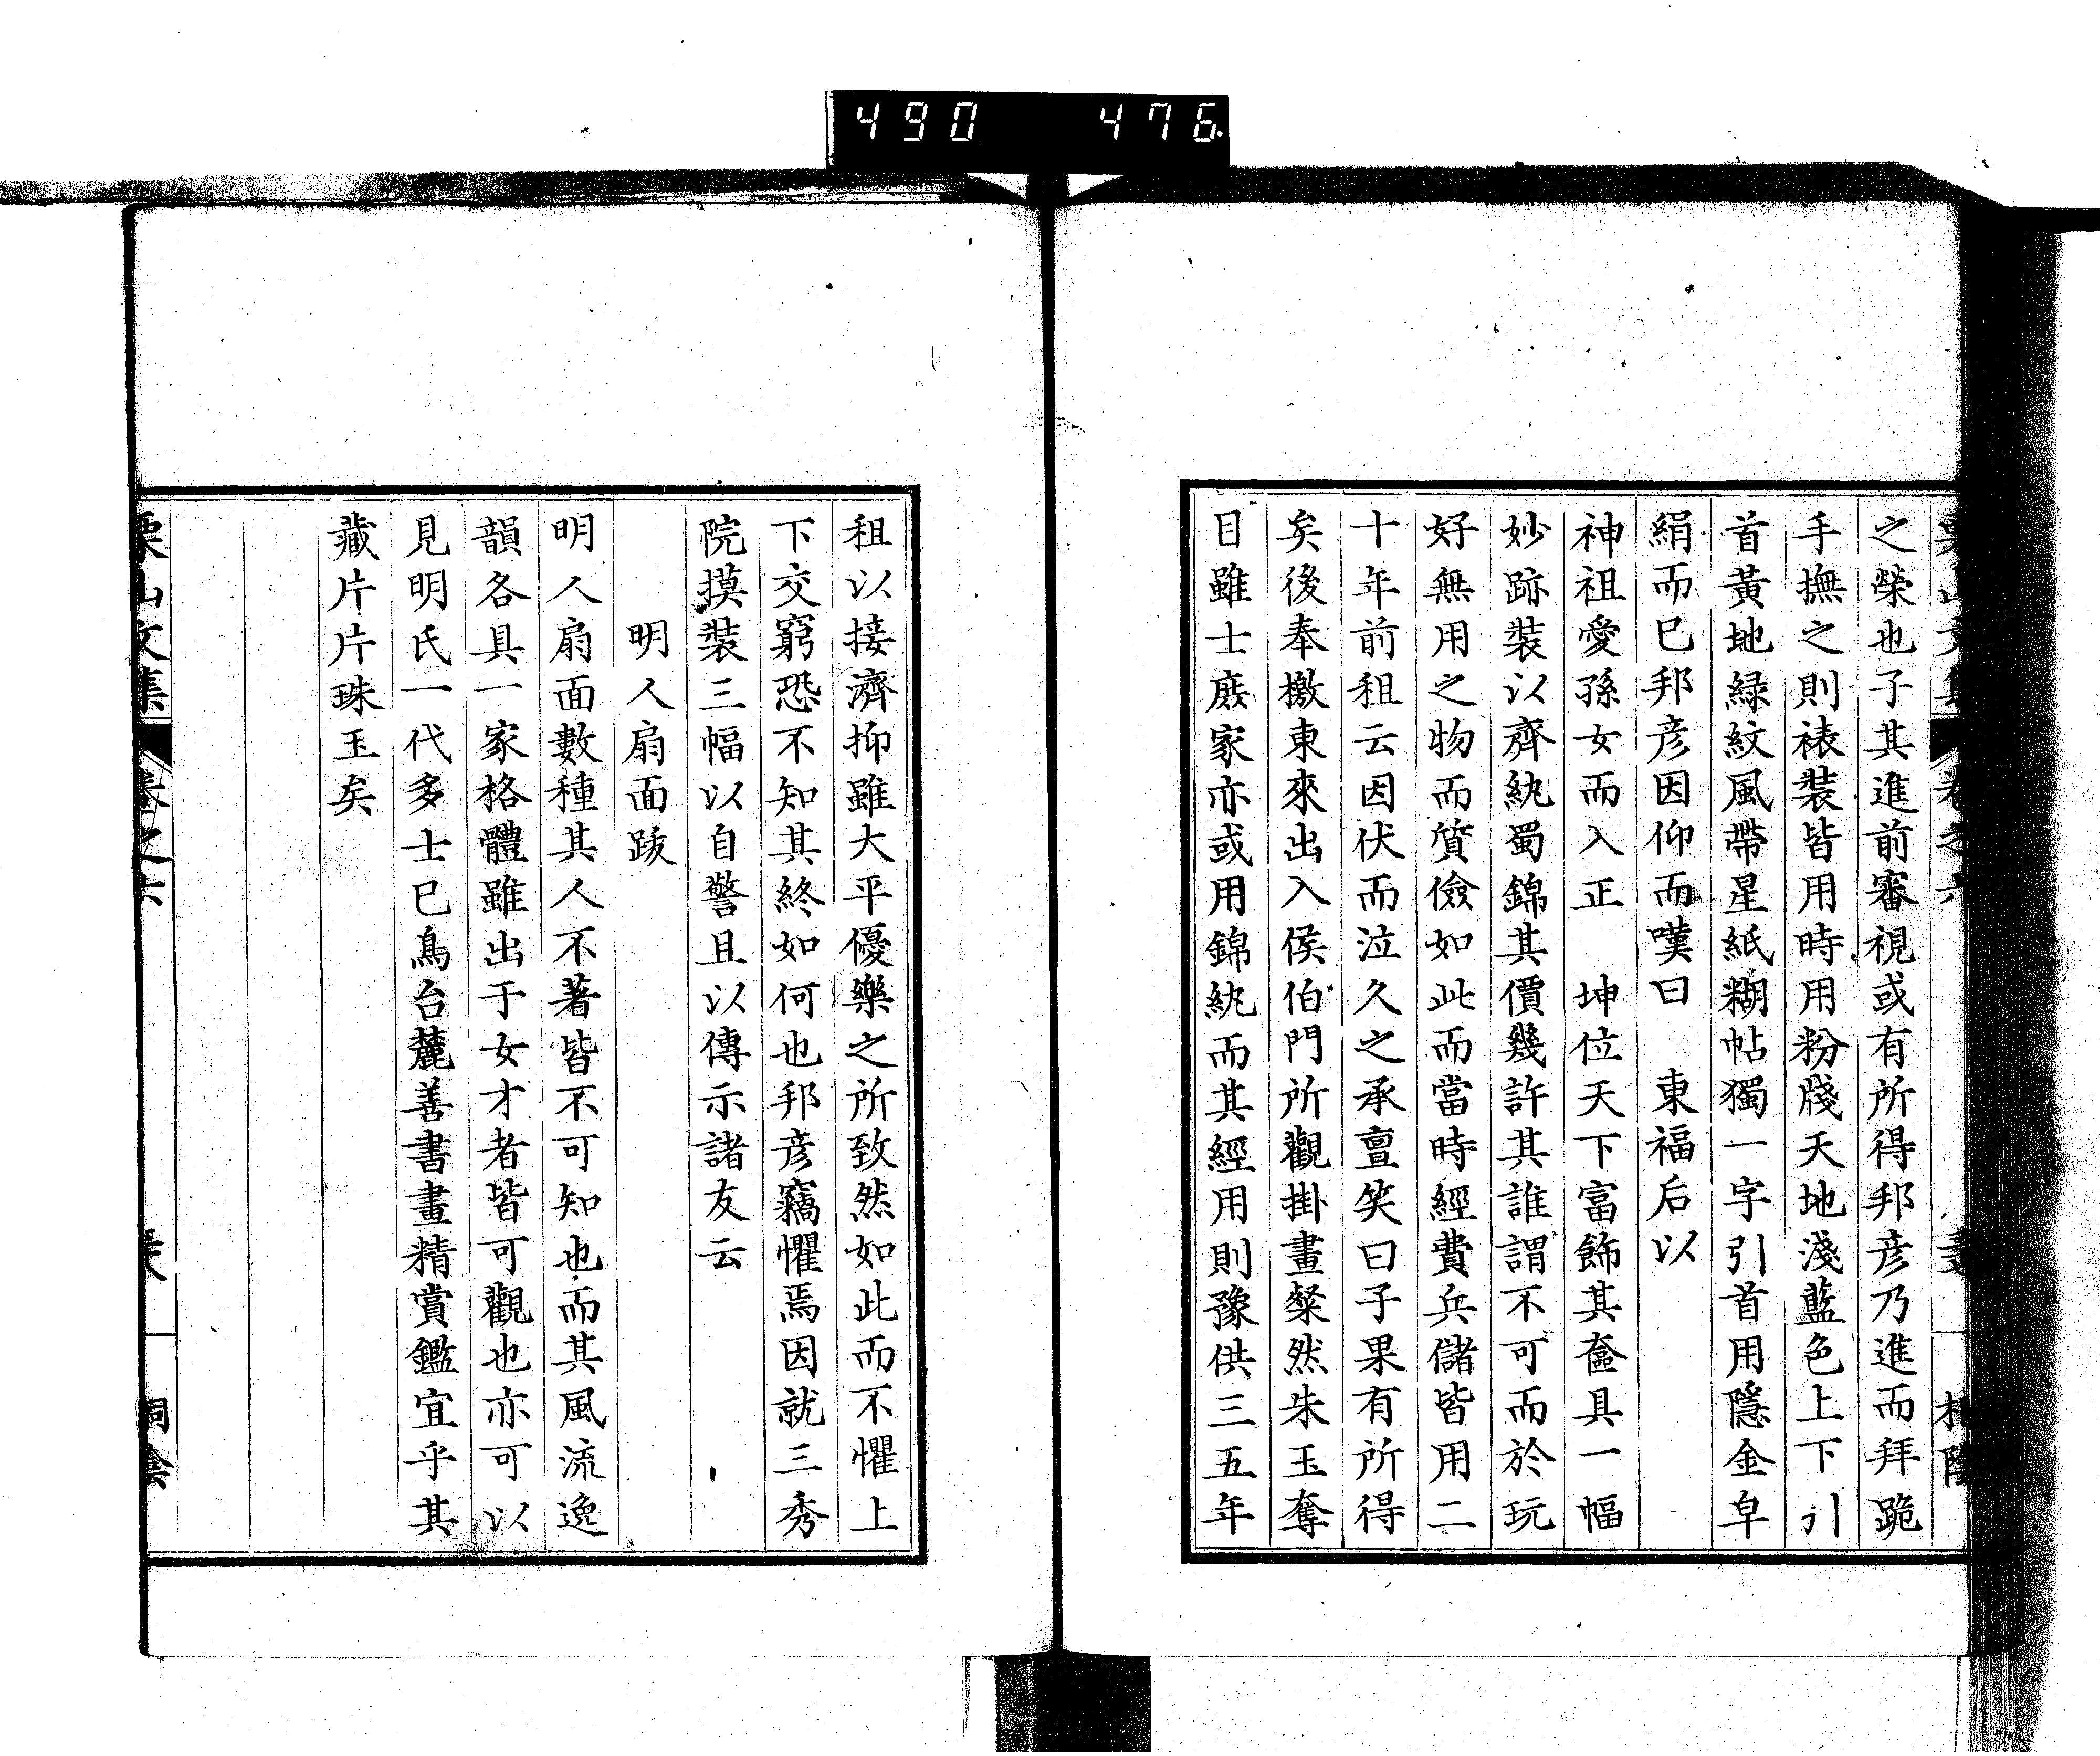 490 476
之榮也子其進前審視或有所得邦彦乃進而拜跪
手撫之則裱裝皆用時用粉牋天地淺藍色上下引
首黃地緑紋風帶星紙糊帖獨一字引首用隱金皁
絹而已邦彦因仰而嘆曰 東福后以
神祖愛孫女而入正 坤位天下富飾其奩具一幅
妙跡裝以齊紈蜀錦其價幾許其誰謂不可而於玩
好無用之物而質儉如此而當時經費兵儲皆用二
十年前租云因伏而泣久之承亶笑曰子果有所得
矣後奉檄東來出入侯伯門所觀掛畫粲然朱玉奪
目雖士庻家亦或用錦紈而其經用則豫供三五年
租以接濟抑雖大平優樂之所致然如此而不懼上
下交窮恐不知其終如何也邦彦竊懼焉因就三秀
院摸裝三幅以自警且以傳示諸友云
明人扇面跋
明人扇面數種其人不著皆不可知也而其風流逸
韻各具一家格體雖出于女才者皆可觀也亦可以
見明氏一代多士已鳥台麓善書畫精賞鑑宜乎其
藏片片珠玉矣
栗山文集 卷之六